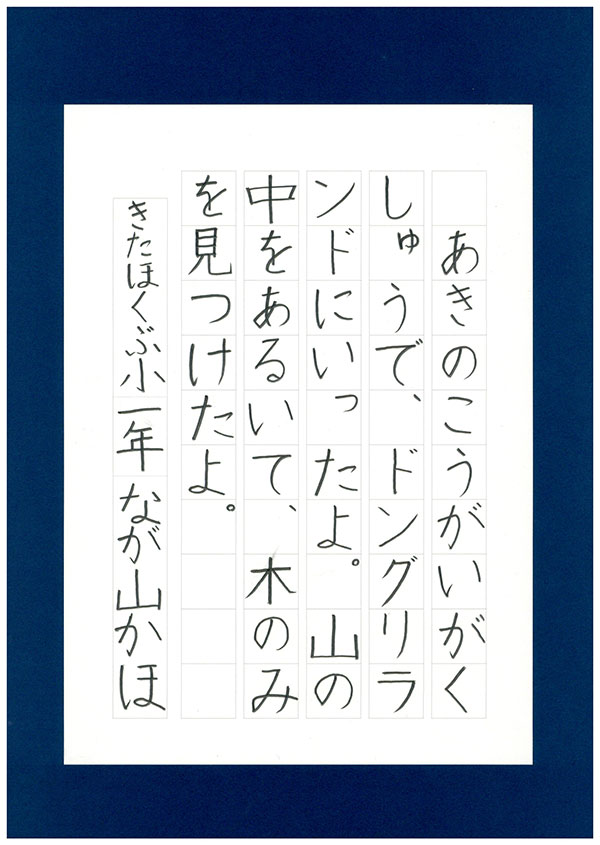 あきのこうがいがく
しゅうで、ドングリラ
ンドにいったよ。山の
中をあるいて、木のみ
を見つけたよ。
きたほくぶ小一年なが山かほ